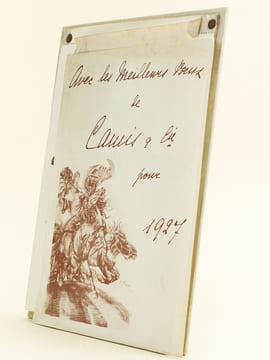 Avec les Meilleurs Vœux
de
Camis & Cie
pour
1927